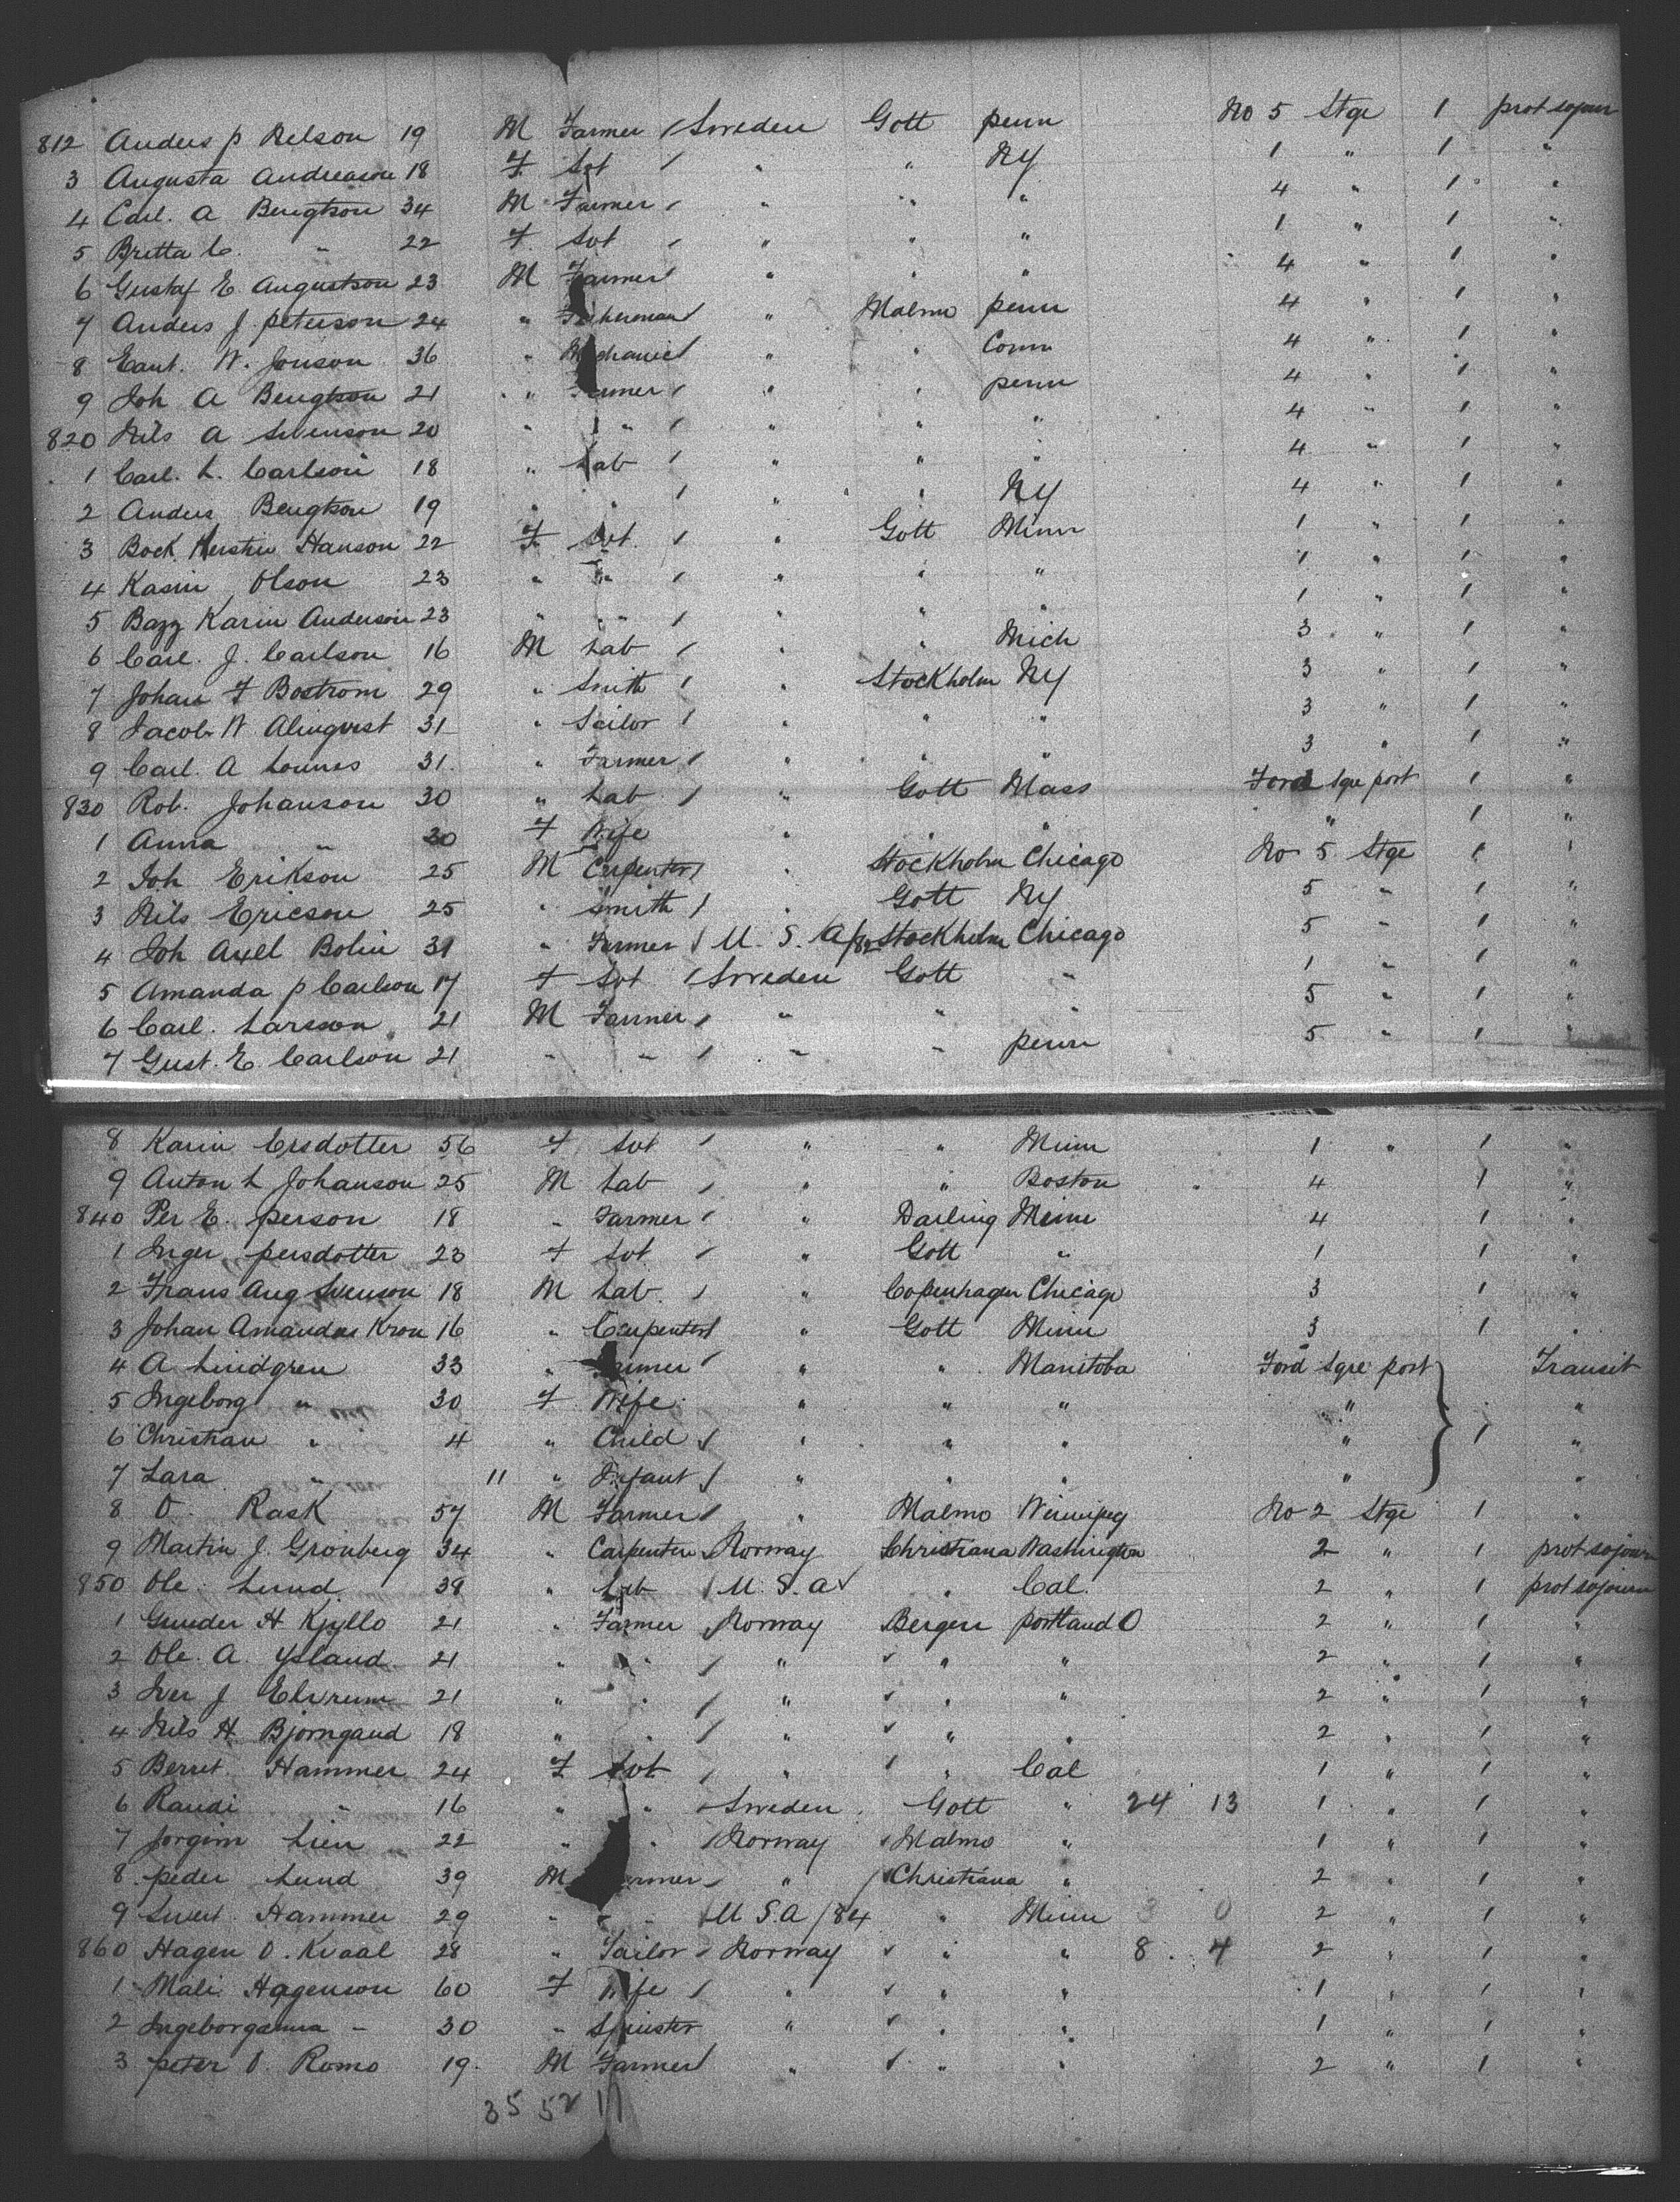 812 Anders p Nelson 19 M Farmer / Sweden Gott penn No 5 Stge 1 prot sojour
3 Augusta Andreason 18 F Svt / " " NY 1 " 1 "
4 Carl. A Bengtson 34 M Farmer / " " " 4 " 1 "
5 Britta C. " 22 F. Svt / " " " 1 " 1 "
6 Gustaf E. Augustson 23 M Farmer / " " " 4 " 1 "
7 Anders J. peterson 24 " Fisherman / " Malmo penn 4 " 1 "
8 W. Jonson 36 " Mechanic / " " Conn 4 " 1 "
9 Joh A Bengtson 21 " Farmer / " " penn 4 " 1 "
820 Nils A Svenson 20 " " / " " " 4 " 1 "
1 Carl. L. Carlson 18 " Lab / " " " 4 " 1 "
2 Anders Bengtson 19 " " / " " NY 4 " 1 "
3 Bock Kerstin Hanson 22 F Svt. / " Gott Minn 1 " 1 "
4 Karin Olson 23 " " / " " " 1 " 1 "
5 Karin Anderson 23 " " / " " " 1 " 1 "
6 Carl. J. Carlson 16 M Lab / " " Mich 3 " 1 "
7 Johan F Bostrom 29 " Smith / " Stockholm NY 3 " 1 "
8 Jacob W Almqvist 31 " Sailor / " " " 3 " 1 "
9 Carl. A 31. " Farmer / " " " 3 " 1 "
830 Rob. Johanson 30 " Lab / " Gott Mass Ford Sqre port 1 "
1 Anna " 20 F Wife " " " " 1 "
2 Joh Erikson 25 M Carpenter / " Stockholm Chicago No 5 Stge 1 "
3 Nils Ericson 25 " Smith / " Gott NY 5 " 1 "
4 Joh Axel Bolin 31 " Farmer / U. S. A /82 Stockholm Chicago 5 " 1 "
5 Amanda p Carlson 17 F Svt / Sweden Gott " 1 " 1 "
6 Carl. Larsson 21 M Farmer / " " " 5 " 1 "
7 Gust. E. Carlson 21 " " / " " penn 5 " 1 "
8 Karin Ersdotter 56 F Svt / " " Minn 1 " 1 "
9 Anton L Johanson 25 M Lab / " " Boston 4 1 "
840 Per E. person 18 " Farmer / " Darling Minn 4 1 "
1 Inger persdotter 23 F Svt / " Gott " 1 1 "
2 Frans Aug Svenson 18 M Lab. / " Copenhagen Chicago 3 1 "
3 Johan Amandus Kron 16 " Carpenter / " Gott Minn 3 1 "
4 A Lindgren 33 " Farmer / " " Manitoba Ford Sqre port Transit
5 Ingeborg " 30 F Wife " " " " "
6 Christian " 4 " Child / " " " " 1 "
7 Lara " 11 " Infant / " " " " "
8 O. Rask 57 M Farmer / " Malmo Winnipeg No 2 Stge 1 "
9 Martin J. Gronberg 34 " Carpenter / Norway Christiana Washington 2 " 1 prot sojour
850 Ole. Lund 38 " Lab / U. S. A " Cal. 2 " 1 prot sojourn
1 Gunder H Kjyllo 21 " Farmer / Norway Bergen portland O 2 " 1 "
2 Ole. A. Ysland 21 " " / " " " 2 " 1 "
3 Iver J Elvrum 21 " " / " " " 2 " 1 "
4 Nils H Bjorngaud 18 " " / " " " 2 " 1 "
5 Berret. Hammer 24 F Svt / " " Cal 1 " 1 "
6 Randi " 16 " " / Sweden Gott " 24 13 1 " 1 "
7 Jorgim Lien 22 " " / Norway Malmo " 1 " 1 "
8 peder Lund 39 M Farmer / " Christiana " 2 " 1 "
9 Hammer 29 " " / U S.A /84 " Minn 3 0 2 " 1 "
860 Hagen O. Kvaal 28 " Tailor / Norway " " 8 . 4 2 " 1 "
1 Mali Hagenson 60 F Wife / " " " 1 " 1 "
2 Ingeborganna - 30 " Spinster " " " 1 " 1 "
3 peter O. Romo 19. M Farmer / " " " 2 " 1 "
35 52 11